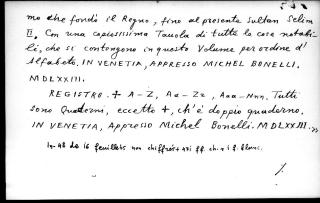 mo che fondò il Regno, fino al presente Sultan Selim
II. Con una copiosissima Tauola di tutte le cose notabi-
li, che si contengono in questo Volume per ordine d'
Alfabeto. IN VENETIA, APPRESSO MICHEL BONELLI.
MDLXXIII.
REGISTRO. + A-Z, Aa-Zz, Aaa-Nnn. Tutti
sono Quaderni, eccetto +, ch'è doppio quaderno.
IN VENETIA, Appresso Michel Bonelli. MDLXXIII.
In-4º de 16 feuillets non chiffrés + ff. ch. + 1 f. blanc.